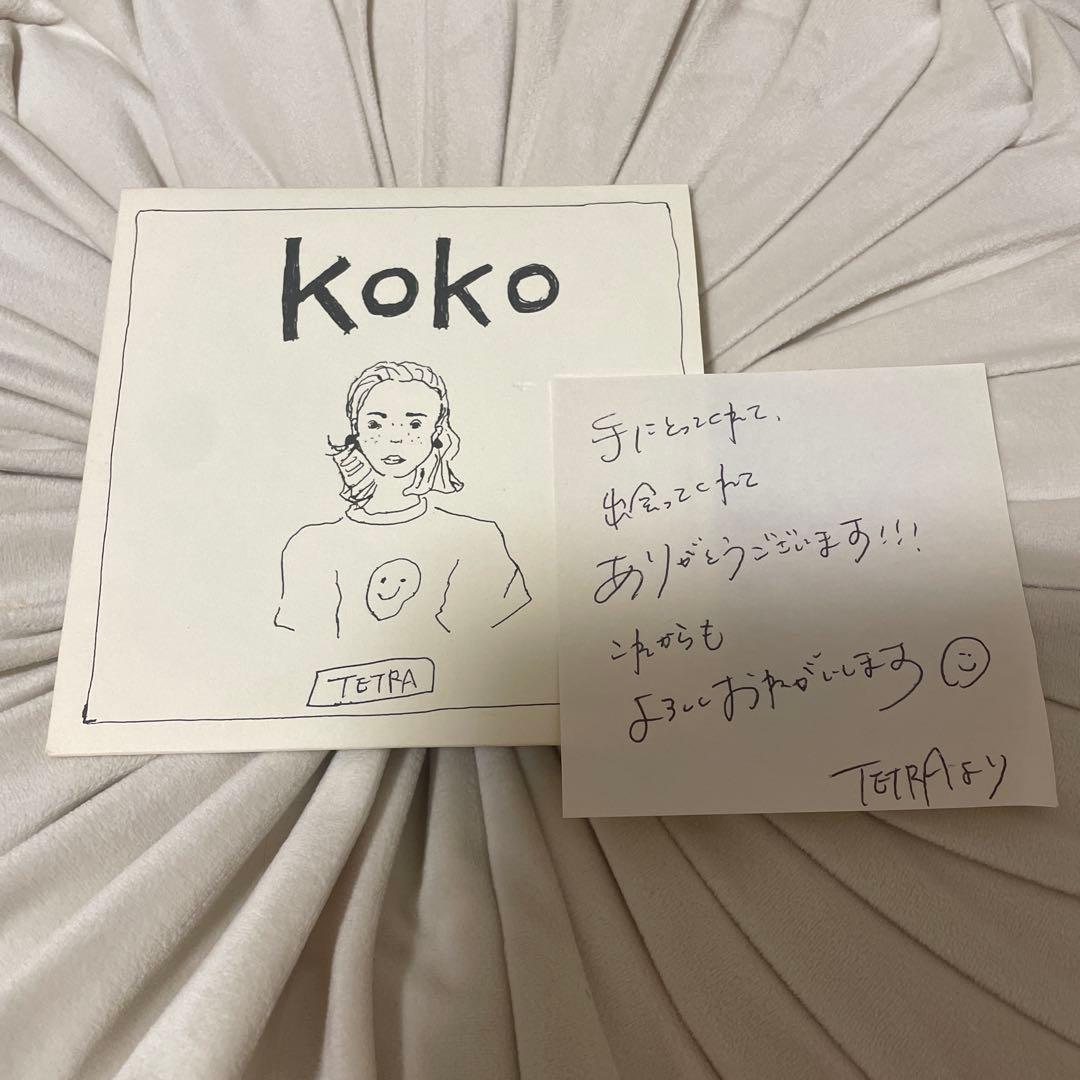 koko
TETRA
手にとってくれて、
出会ってくれて
ありがとうございます!!!
これからも
よろしくおねがいします
TETRAより